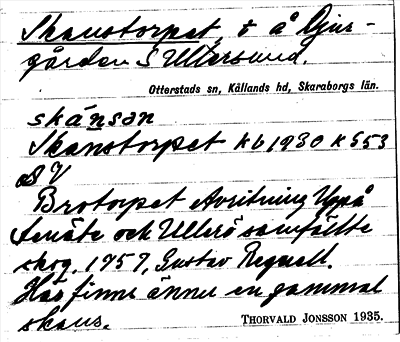 Skanstorpet, t å Djur-
gården S Ullersund.
Otterstads sn, Kållands hd, Skaraborgs län.
skánsan
Skanstorpet kb 1930 k S53
SV
Brotorpet Avritning Uppå
Senäte och Ullersö samfällte
skog, 1757, Gustav Regnell.
Här finns ännu en gammal
skans.
THORVALD JONSSON 1935.